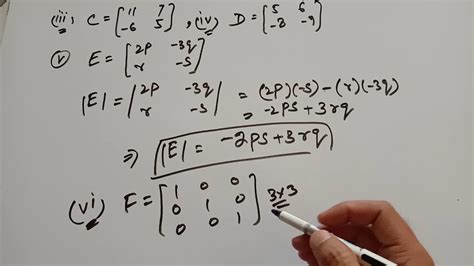 (iii) C = [11 7; -6 5], (iv) D = [5 6; -8 -9]
(v) E = [2p -3q; r -s]
|E| = |2p -3q; r -s| = (2p)(-s) - (r)(-3q)
= -2ps + 3rq
⇒ |E| = -2ps + 3rq
(vi) F = [1 0 0; 0 1 0; 0 0 1] 3×3